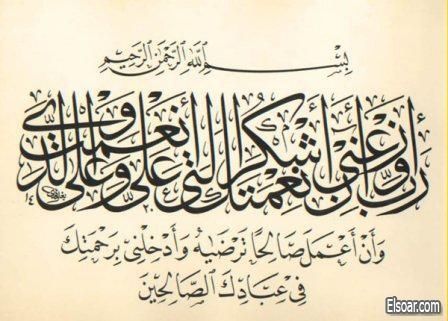 بِسْمِ اللَّهِ الرَّحْمَٰنِ الرَّحِيمِ
رَبِّ أَوْزِعْنِي أَنْ أَشْكُرَ نِعْمَتَكَ الَّتِي أَنْعَمْتَ عَلَيَّ وَعَلَىٰ وَالِدَيَّ
وَأَنْ أَعْمَلَ صَالِحًا تَرْضَاهُ وَأَدْخِلْنِي بِرَحْمَتِكَ
فِي عِبَادِكَ الصَّالِحِينَ
Elsoar.com